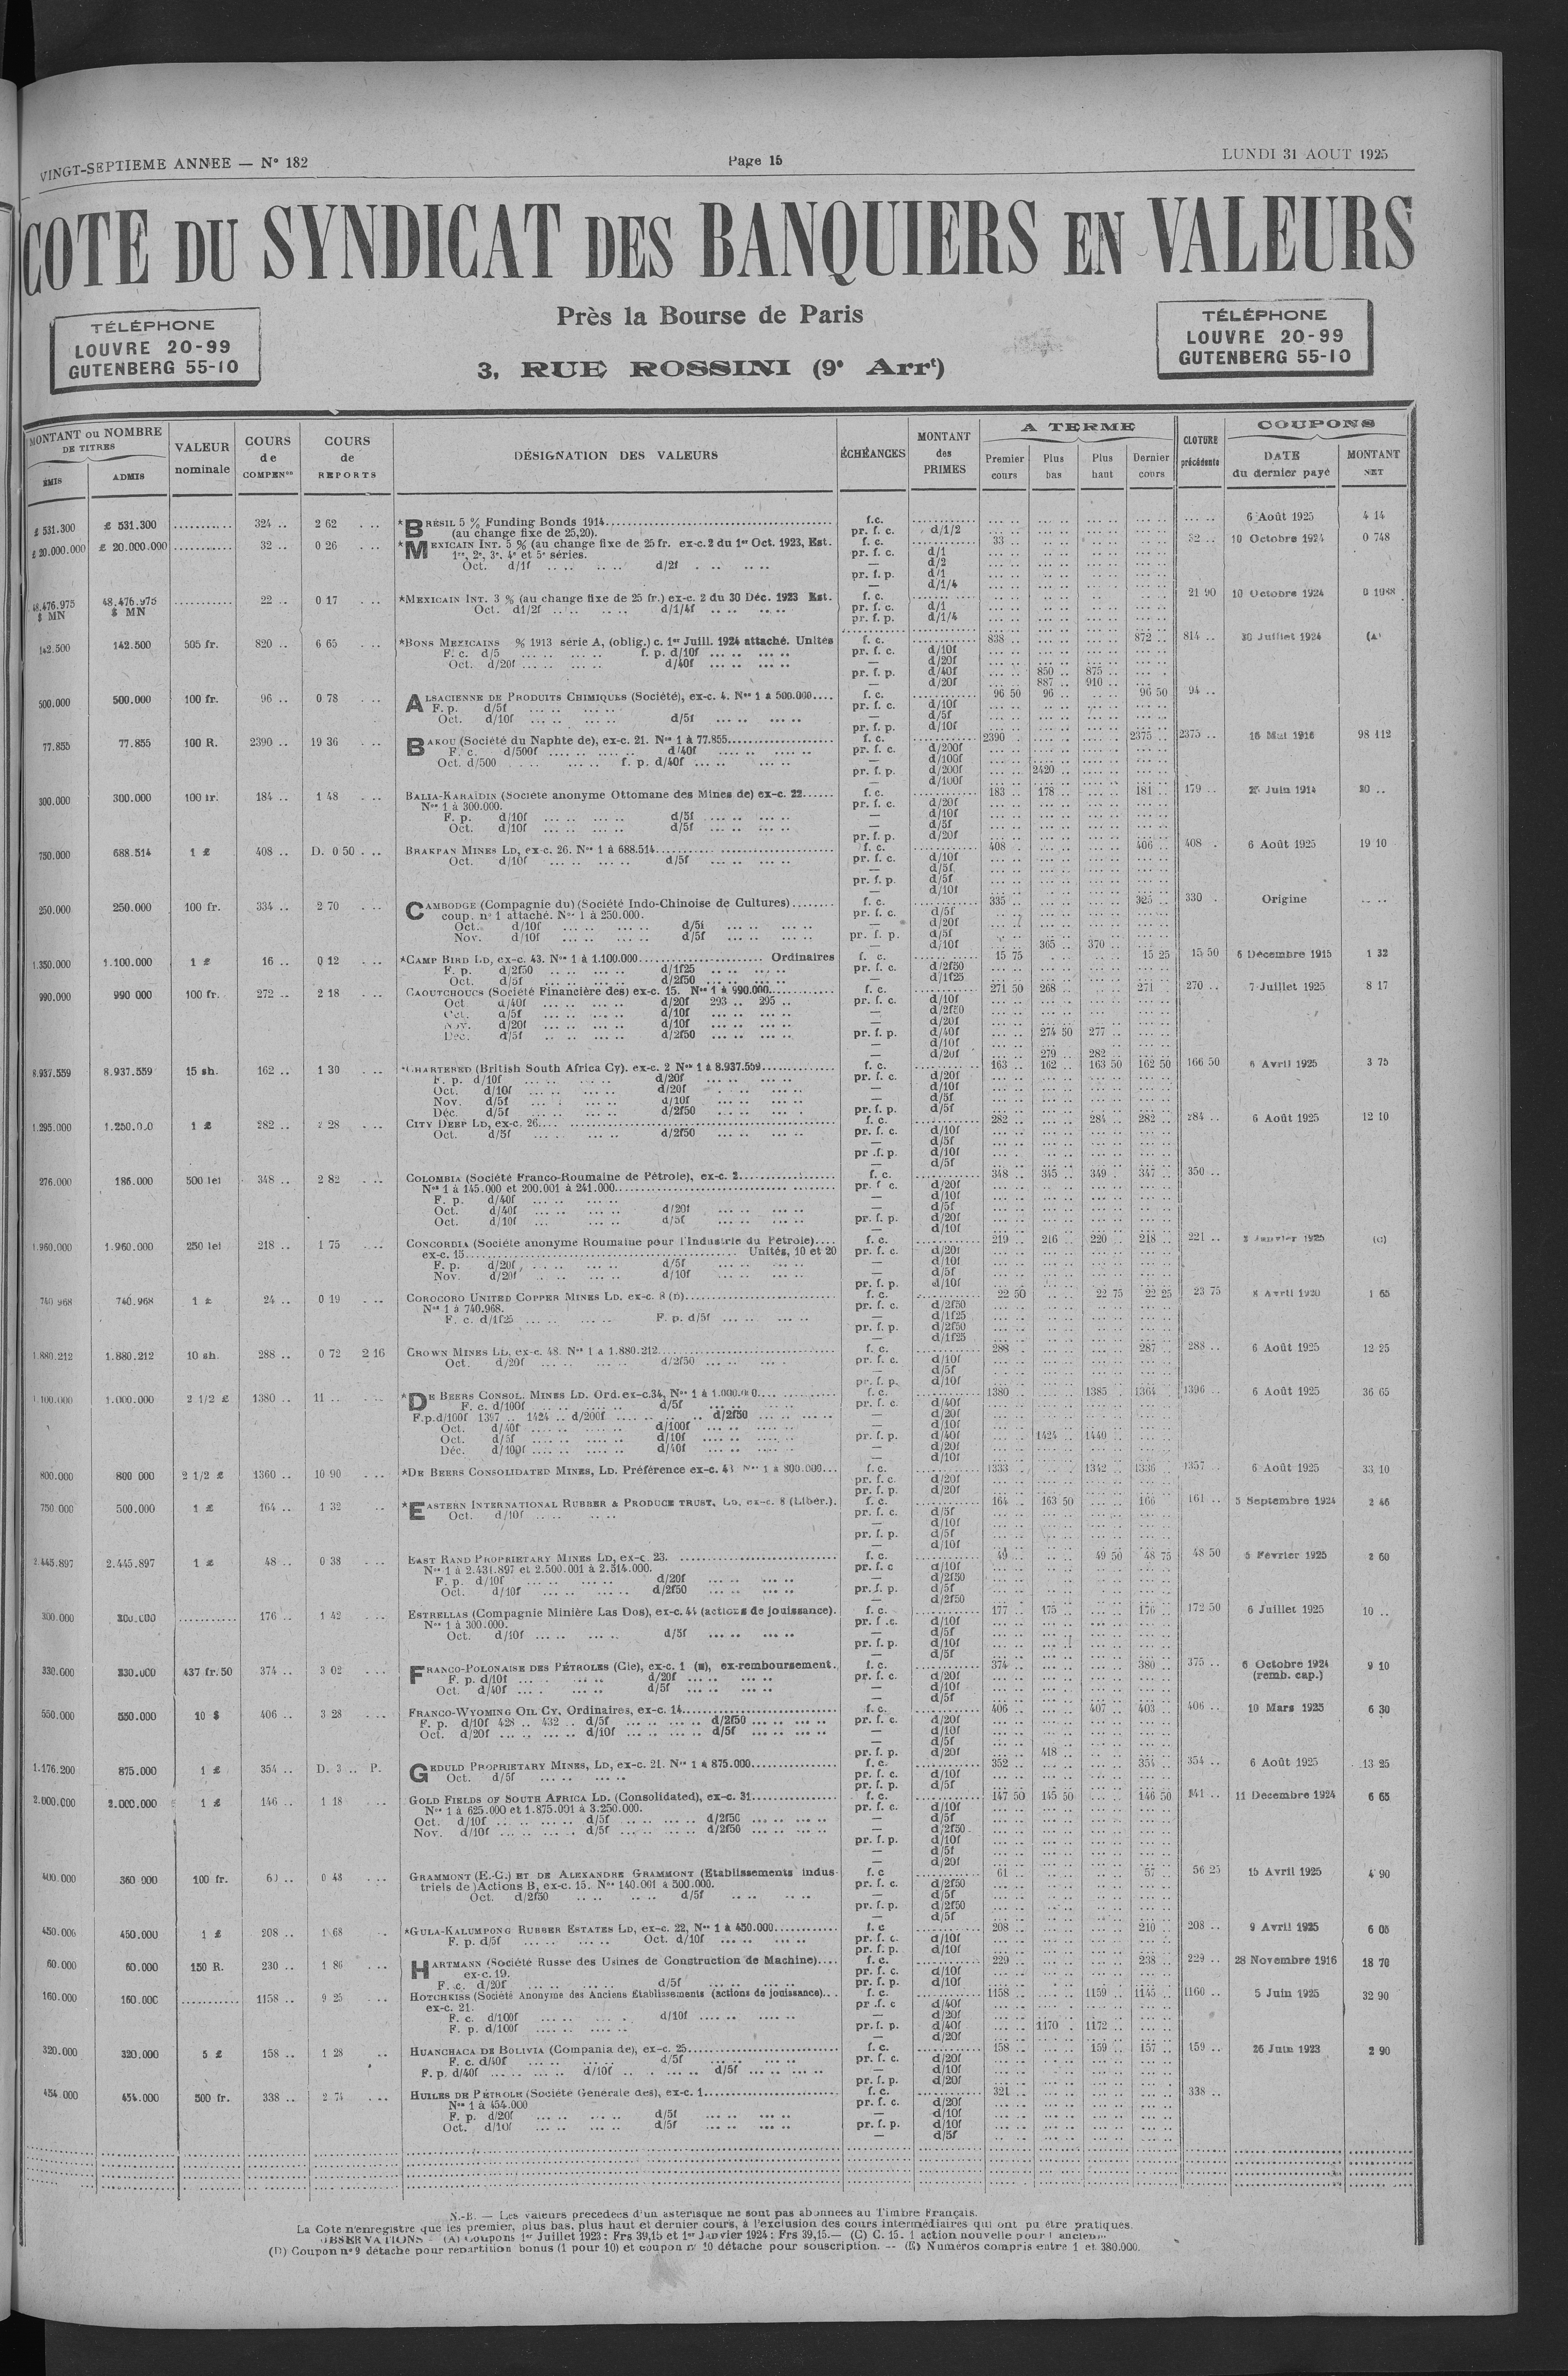 VINGT-SEPTIEME ANNEE — N° 182
Page 15
LUNDI 31 AOUT 1925
COTE DU SYNDICAT DES BANQUIERS EN VALEURS
TÉLÉPHONE
LOUVRE 20-99
GUTENBERG 55-10
Près la Bourse de Paris
3, RUE ROSSINI (9e Arrt)
TÉLÉPHONE
LOUVRE 20-99
GUTENBERG 55-10
MONTANT ou NOMBRE DE TITRES
ÉMIS
ADMIS
VALEUR nominale
COURS de COMPENon
COURS de REPORTS
DÉSIGNATION DES VALEURS
ÉCHÉANCES
MONTANT des PRIMES
A TERME
Premier cours
Plus bas
Plus haut
Dernier cours
CLOTURE précédente
COUPONS
DATE du dernier payé
MONTANT NET
£ 531.300 £ 531.300 324 .. 2 62 *BRÉSIL 5 % Funding Bonds 1914 f.c. 6 Août 1925 4 14
(au change fixe de 25,20). pr. f. c. d/1/2
£ 20.000.000 £ 20.000.000 32 .. 0 26 *MEXICAIN INT. 5 % (au change fixe de 25 fr. ex-c. 2 du 1er Oct. 1923, Est. f. c. 33 .. 32 .. 10 Octobre 1924 0 748
1re, 2e, 3e, 4e et 5e séries. pr. f. c. d/1
Oct. d/1f d/2f — d/2
pr. f. p. d/1
— d/1/4
48.476.975 $ MN 48.476.975 $ MN 22 .. 0 17 *MEXICAIN INT. 3 % (au change fixe de 25 fr.) ex-c. 2 du 30 Déc. 1923 Est. f. c. 21 90 10 Octobre 1924
Oct. d1/2f d/1/4f pr. f. c. d/1
pr. f. p. d/1/4
142.500 142.500 505 fr. 820 .. 6 65 *BONS MEXICAINS % 1913 série A, (oblig.) c. 1er Juill. 1924 attaché. Unités f. c. 838 .. 872 .. 814 .. 30 Juillet 1924 (A)
F. c. d/5 f. p. d/10f pr. f. c. d/10f
Oct. d/20f d/40f — d/20f
pr. f. p. d/40f 850 .. 875 ..
— d/20f 887 .. 910 ..
500.000 500.000 100 fr. 96 .. 0 78 ALSACIENNE DE PRODUITS CHIMIQUES (Société), ex-c. 4. Nos 1 à 500.000 f. c. 96 50 96 .. 96 50 94 ..
F. p. d/5f pr. f. c. d/10f
Oct. d/10f d/5f — d/5f
pr. f. p. d/10f
77.855 77.855 100 R. 2390 .. 19 36 BAKOU (Société du Naphte de), ex-c. 21. Nos 1 à 77.855 f. c. 2390 .. 2375 .. 2375 .. 16 Mai 1916 98 112
F. c. d/500f d/40f pr. f. c. d/200f
Oct. d/500 f. p. d/40f — d/100f
pr. f. p. d/200f 2420 ..
— d/100f
300.000 300.000 100 fr. 184 .. 1 48 BALIA-KARAÏDIN (Société anonyme Ottomane des Mines de) ex-c. 22 f. c. 183 .. 178 .. 181 .. 179 .. 25 Juin 1914
Nos 1 à 300.000. pr. f. c. d/20f
F. p. d/10f d/5f — d/10f
Oct. d/10f d/5f — d/5f
pr. f. p. d/20f
750.000 688.514 1 £ 408 .. D. 0 50 BRAKPAN MINES LD, ex-c. 26. Nos 1 à 688.514 f. c. 408 .. 406 .. 408 . 6 Août 1925 19 10
Oct. d/10f d/5f pr. f. c. d/10f
— d/5f
pr. f. p. d/5f
— d/10f
250.000 250.000 100 fr. 334 .. 2 70 CAMBODGE (Compagnie du) (Société Indo-Chinoise de Cultures) f. c. 335 .. 325 .. 330 . Origine
coup. n° 1 attaché. Nos 1 à 250.000. pr. f. c. d/5f
Oct. d/10f d/5f — d/20f
Nov. d/10f d/5f pr. f. p. d/5f
— d/10f 365 .. 370 ..
1.350.000 1.100.000 1 £ 16 .. 0 12 *CAMP BIRD LD, ex-c. 43. Nos 1 à 1.100.000 Ordinaires f. c. 15 75 15 25 15 50 6 Décembre 1915 1 32
F. p. d/2f50 d/1f25 pr. f. c. d/2f50
Oct. d/5f d/2f50 — d/1f25
990.000 990 000 100 fr. 272 .. 2 18 CAOUTCHOUCS (Société Financière des) ex-c. 15. Nos 1 à 990.000 f. c. 271 50 268 .. 271 .. 270 .. 7 Juillet 1925 8 17
Oct d/40f d/20f 293 .. 295 .. pr. f. c. d/10f
Oct. d/5f d/10f — d/2f50
Nov. d/20f d/10f — d/20f
Déc. d/5f d/2f50 pr. f. p. d/40f 274 50 277 ..
— d/10f
— d/20f 279 .. 282 ..
8.937.559 8.937.559 15 sh. 162 .. 1 30 *CHARTERED (British South Africa Cy). ex-c. 2 Nos 1 à 8.937.559 f. c. 163 .. 162 .. 163 50 162 50 166 50 6 Avril 1925 3 75
F. p. d/10f d/20f pr. f. c. d/20f
Oct. d/10f d/20f — d/10f
Nov. d/5f d/10f — d/5f
Déc. d/5f d/2f50 pr. f. p. d/5f
1.295.000 1 £ 282 .. 2 28 CITY DEEP LD, ex-c. 26 f. c. 282 .. 284 .. 282 .. 284 .. 6 Août 1925 12 10
Oct. d/5f d/2f50 pr. f. c. d/10f
— d/5f
pr .f. p. d/10f
— d/5f
276.000 186.000 500 lei 348 .. 2 82 COLOMBIA (Société Franco-Roumaine de Pétrole), ex-c. 2 f. c. 348 .. 345 .. 349 . 347 .. 350 ..
Nos 1 à 145.000 et 200.001 à 241.000 pr. f c. d/20f
F. p. d/40f — d/10f
Oct. d/40f d/20f — d/5f
Oct. d/10f d/5f pr. f. p. d/20f
— d/10f
1.960.000 1.960.000 250 lei 218 .. 1 75 CONCORDIA (Société anonyme Roumaine pour l'Industrie du Pétrole) f. c. 219 .. 216 .. 220 .. 218 .. 221 .. Janvier 1925 (C)
ex-c. 15 Unités, 10 et 20 pr. f. c. d/20f
F. p. d/20f d/5f — d/10f
Nov. d/20f d/10f — d/5f
pr. f. p. d/10f
740 968 740.968 1 £ 24 .. 0 19 COROCORO UNITED COPPER MINES LD. ex-c. 8 (D) f. c. 22 50 22 75 22 25 23 75 8 Avril 1920 1 65
Nos 1 à 740.968. pr. f. c. d/2f50
F. c. d/1f25 F. p. d/5f — d/1f25
pr. f. p. d/2f50
— d/1f25
1.880.212 1.880.212 10 sh. 288 .. 0 72 2 16 CROWN MINES LD, ex-c. 48. Nos 1 à 1.880.212 f. c. 288 287 .. 288 .. 6 Août 1925 12 25
Oct. d/20f d/2f50 pr. f. c. d/10f
— d/5f
pr. f. p. d/10f
1.100.000 1.000.000 2 1/2 £ 1380 .. 11 .. *DE BEERS CONSOL. MINES LD. Ord. ex-c. 34, Nos 1 à 1.000.000 f. c. 1380 .. 1385 .. 1364 .. 1396 .. 6 Août 1925 36 65
F. c. d/100f d/5f pr. f. c. d/40f
F.p.d/100f 1397 .. 1424 .. d/200f d/2f50 — d/20f
Oct. d/40f d/100f — d/10f
Oct. d/5f d/10f pr. f. p. d/40f 1424 .. 1440 ..
Déc. d/100f d/40f — d/20f
— d/10f
800.000 800 000 2 1/2 £ 1360 .. 10 90 *DE BEERS CONSOLIDATED MINES, LD. Préférence ex-c. 43 Nos 1 à 800.000 f. c. 1333 .. 1342 .. 1336 .. 1357 .. 6 Août 1925 33 10
pr. f. c. d/20f
pr. f. p. d/20f
750 000 500.000 1 £ 164 .. 1 32 *EASTERN INTERNATIONAL RUBBER & PRODUCE TRUST, LD, ex-c. 8 (Libér.). f. c. 164 .. 163 50 166 161 .. 5 Septembre 1924 2 46
Oct. d/10f pr. f. c. d/5f
— d/10f
pr. f. p. d/5f
— d/10f
2.445.897 2.445.897 1 £ 48 .. 0 38 EAST RAND PROPRIETARY MINES LD, ex-c. 23. f. c. 49 .. 49 50 48 75 48 50 5 Février 1925 2 60
Nos 1 à 2.431.897 et 2.500.001 à 2.514.000. pr. f. c d/10f
F. p. d/10f d/20f — d/2f50
Oct. d/10f d/2f50 pr. f. p. d/5f
— d/2f50
300.000 300.000 176 .. 1 42 ESTRELLAS (Compagnie Minière Las Dos), ex-c. 44 (actions de jouissance). f. c. 177 .. 175 .. 176 .. 172 50 6 Juillet 1925 10 ..
Nos 1 à 300.000. pr. f .c. d/10f
Oct. d/10f d/5f — d/5f
pr. f. p. d/10f
— d/5f
330.000 330.000 437 fr. 50 374 .. 3 02 FRANCO-POLONAISE DES PÉTROLES (Cie), ex-c. 1 (E), ex-remboursement. f. c. 374 .. 380 .. 375 .. 6 Octobre 1924 9 10
F. p. d/10f d/20f pr. f. c. d/20f (remb. cap.)
Oct. d/40f d/5f — d/10f
— d/5f
550.000 550.000 10 $ 406 .. 3 28 FRANCO-WYOMING OIL CY, Ordinaires, ex-c. 14 f. c. 406 .. 407 .. 403 .. 406 .. 10 Mars 1925 6 30
F. p. d/10f 428 .. 432 .. d/5f d/2f50 pr. f. c. d/20f
Oct. d/20f d/10f d/5f — d/10f
— d/5f
pr. f. p. d/20f 418 ..
1.176.200 875.000 1 £ 354 .. D. 3 .. P. GEDULD PROPRIETARY MINES, LD, ex-c. 21. Nos 1 à 875.000 f. c. 352 .. 354 .. 354 .. 6 Août 1925 13 25
Oct. d/5f pr. f. c. d/10f
pr. f. p. d/5f
2.000.000 2.000.000 1 £ 146 .. 1 18 GOLD FIELDS OF SOUTH AFRICA LD. (Consolidated), ex-c. 31 f. c. 147 50 145 50 146 50 141 .. 11 Décembre 1924 6 65
Nos 1 à 625.000 et 1.875.001 à 3.250.000. pr. f. c. d/10f
Oct. d/10f d/5f d/2f50 — d/5f
Nov. d/10f d/5f d/2f50 — d/2f50
pr. f. p. d/10f
— d/5f
— d/20f
400.000 360 000 100 fr. 60 .. 0 48 GRAMMONT (E.-C.) ET DE ALEXANDRE GRAMMONT (Etablissements indus- f. c 61 .. 57 .. 56 25 15 Avril 1925 4 90
triels de )Actions B, ex-c. 15. Nos 140.001 à 500.000. pr. f. c. d/2f50
Oct. d/2f50 d/5f — d/5f
pr. f. p. d/2f50
— d/5f
450.000 450.000 1 £ 208 .. 1 68 *GULA-KALUMPONG RUBBER ESTATES LD, ex-c. 22, Nos 1 à 450.000 f. c 208 .. 210 .. 208 .. 9 Avril 1925 6 05
F. p. d/5f Oct. d/10f pr. f. c. d/10f
pr. f. p. d/10f
60.000 60.000 150 R. 230 .. 1 86 HARTMANN (Société Russe des Usines de Construction de Machine) f. c. 229 .. 238 .. 229 .. 28 Novembre 1916 18 70
ex-c. 19. pr. f. c. d/10f
F. c. d/20f d/5f pr. f. p. d/10f
160.000 160.000 1158 .. 9 25 HOTCHKISS (Société Anonyme des Anciens Etablissements (actions de jouissance) f. c. 1158 .. 1159 .. 1145 .. 1160 .. 5 Juin 1925 32 90
ex-c. 21. pr .f. c d/40f
F. c. d/100f d/10f — d/20f
F. p. d/100f pr. f. p. d/40f 1170 . 1172 ..
— d/20f
320.000 320.000 5 £ 158 .. 1 28 HUANCHACA DE BOLIVIA (Compania de), ex-c. 25 f. c. 158 .. 159 .. 157 .. 159 .. 26 Juin 1923 2 90
F. c. d/40f d/5f pr. f. c. d/20f
F. p. d/40f d/10f d/5f — d/10f
pr. f. p. d/20f
454 000 454.000 500 fr. 338 .. 2 74 HUILES DE PÉTROLE (Société Générale des), ex-c. 1 f. c. 321 338 ..
Nos 1 à 454.000 pr. f. c. d/20f
F. p. d/20f d/5f — d/10f
Oct. d/10f d/5f pr. f. p. d/10f
— d/5f
N.-B. — Les valeurs précédées d'un astérisque ne sont pas abonnées au Timbre Français.
La Cote n'enregistre que les premier, plus bas, plus haut et dernier cours, à l'exclusion des cours intermédiaires qui ont pu être pratiqués.
OBSERVATIONS - (A) Coupons 1er Juillet 1923 : Frs 39,15 et 1er Janvier 1924 : Frs 39,15.— (C) C. 15. 1 action nouvelle pour 1 ancienne
(D) Coupon n° 9 détaché pour répartition bonus (1 pour 10) et coupon n° 10 détaché pour souscription. — (E) Numéros compris entre 1 et 380.000.